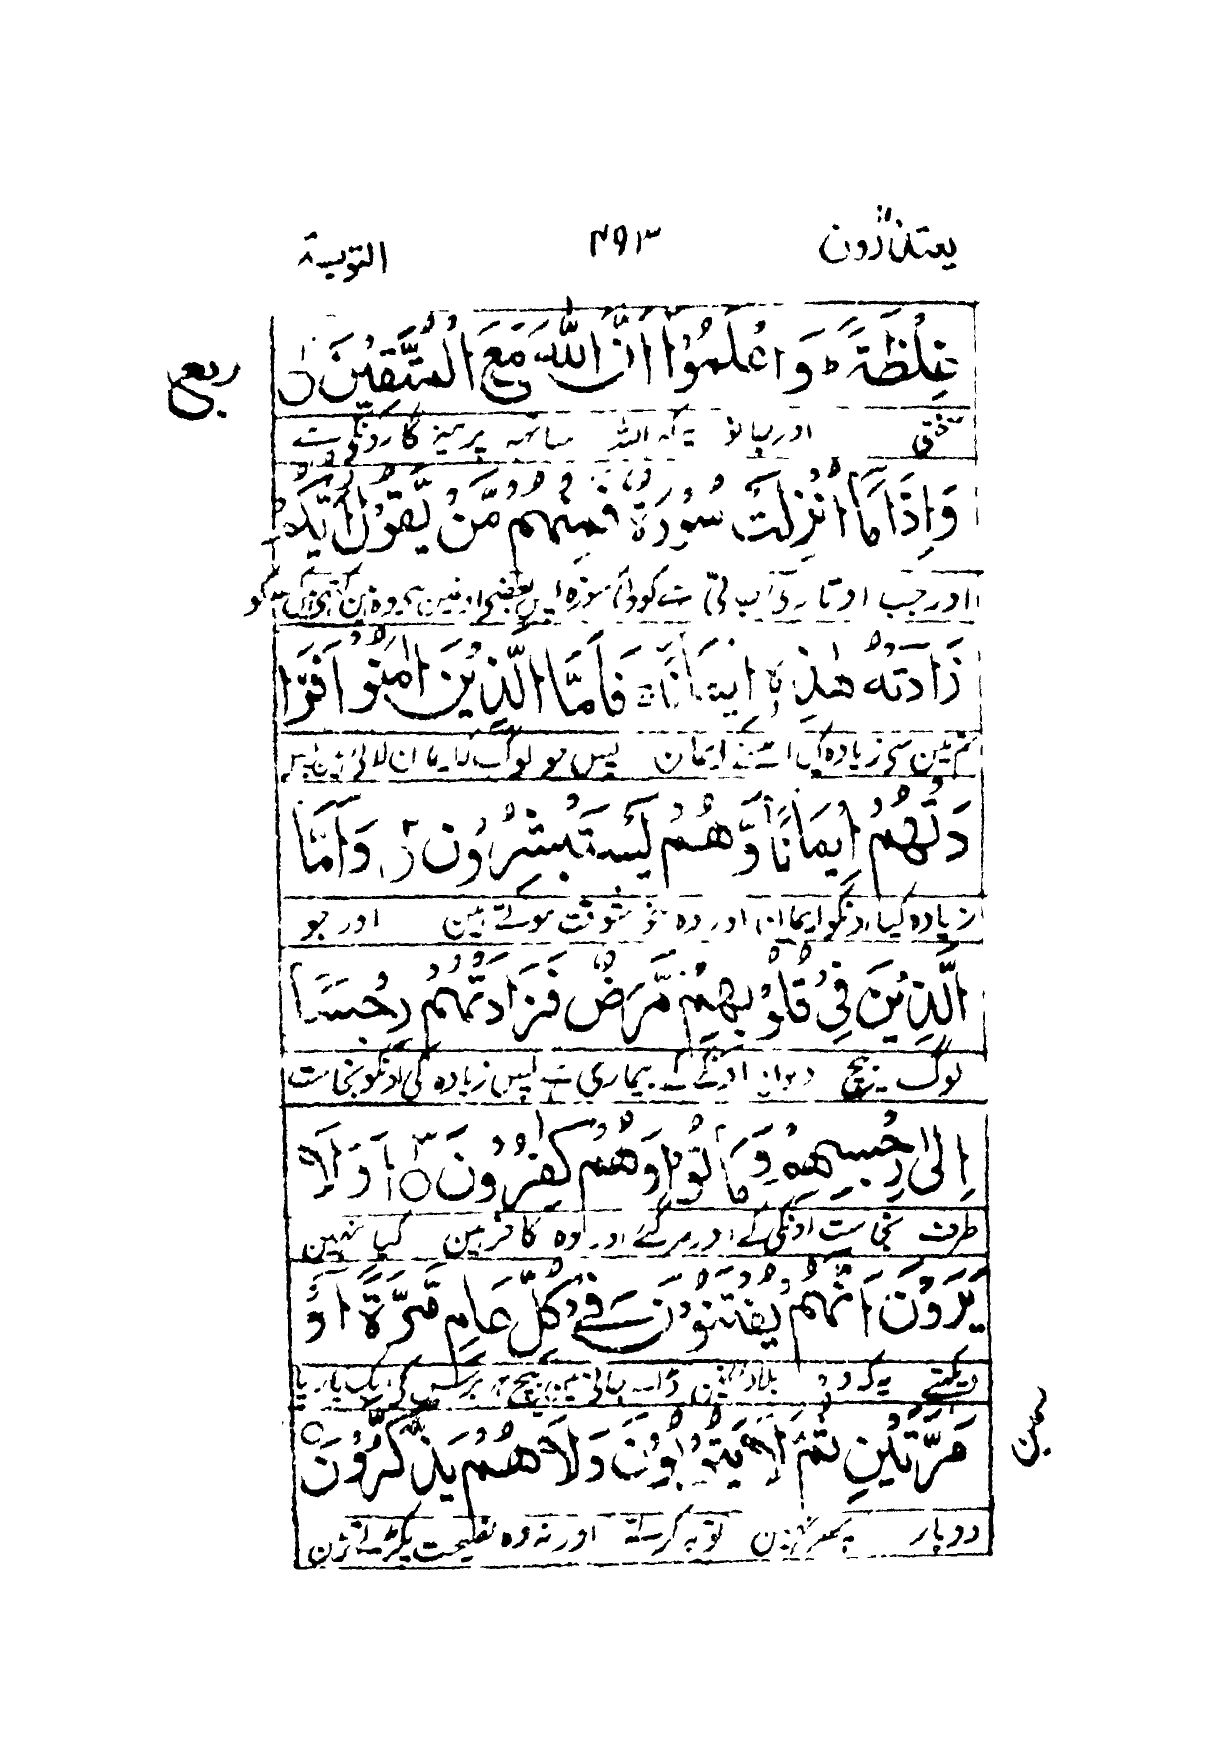 یعتذرون ۴۹۳ التوبة
غِلْظَةً ؕ وَاعْلَمُوْٓا اَنَّ اللّٰهَ مَعَ الْمُتَّقِیْنَ
ربع
سختی اور جانو یہ کہ اللہ ساتھ پرہیزگارونکی ہے
وَاِذَا مَآ اُنْزِلَتْ سُوْرَةٌ فَمِنْهُمْ مَّنْ یَّقُوْلُ اَیُّكُمْ
اور جب اوتاری جاتی ہے کوئی سورہ پس بعضی اونمین سی وہ ہین کہ
زَادَتْهُ هٰذِهٖٓ اِیْمَانًا ۚ فَاَمَّا الَّذِیْنَ اٰمَنُوْا فَزَا
تم مین سی زیادہ کیا اسنے ایمان پس جو لوگ کہ ایمان لائی ہین پس
دَتْهُمْ اِیْمَانًا وَّهُمْ یَسْتَبْشِرُوْنَ وَاَمَّا
زیادہ کیا اونکو ایمان اور وہ خوشوقت ہوتے ہین اور جو
الَّذِیْنَ فِیْ قُلُوْبِهِمْ مَّرَضٌ فَزَادَتْهُمْ رِجْسًا
لوگ بیچ دلون اونکے کے بیماری ہے پس زیادہ کی اونکو نجاست
اِلٰی رِجْسِهِمْ وَمَاتُوْا وَهُمْ كٰفِرُوْنَ اَوَلَا
طرف نجاست اونکی کے اور مر گئے اور وہ کافر ہین کیا نہین
یَرَوْنَ اَنَّهُمْ یُفْتَنُوْنَ فِیْ كُلِّ عَامٍ مَّرَّةً اَوْ
دیکھتے یہ کہ وہ بلا مین ڈالے جاتی ہین بیچ ہر برس کی ایک بار یا
مَرَّتَیْنِ ثُمَّ لَا یَتُوْبُوْنَ وَلَا هُمْ یَذَّكَّرُوْنَ
دوبار پھر نہین توبہ کرتے اور نہ وہ نصیحت پکڑتے ہین